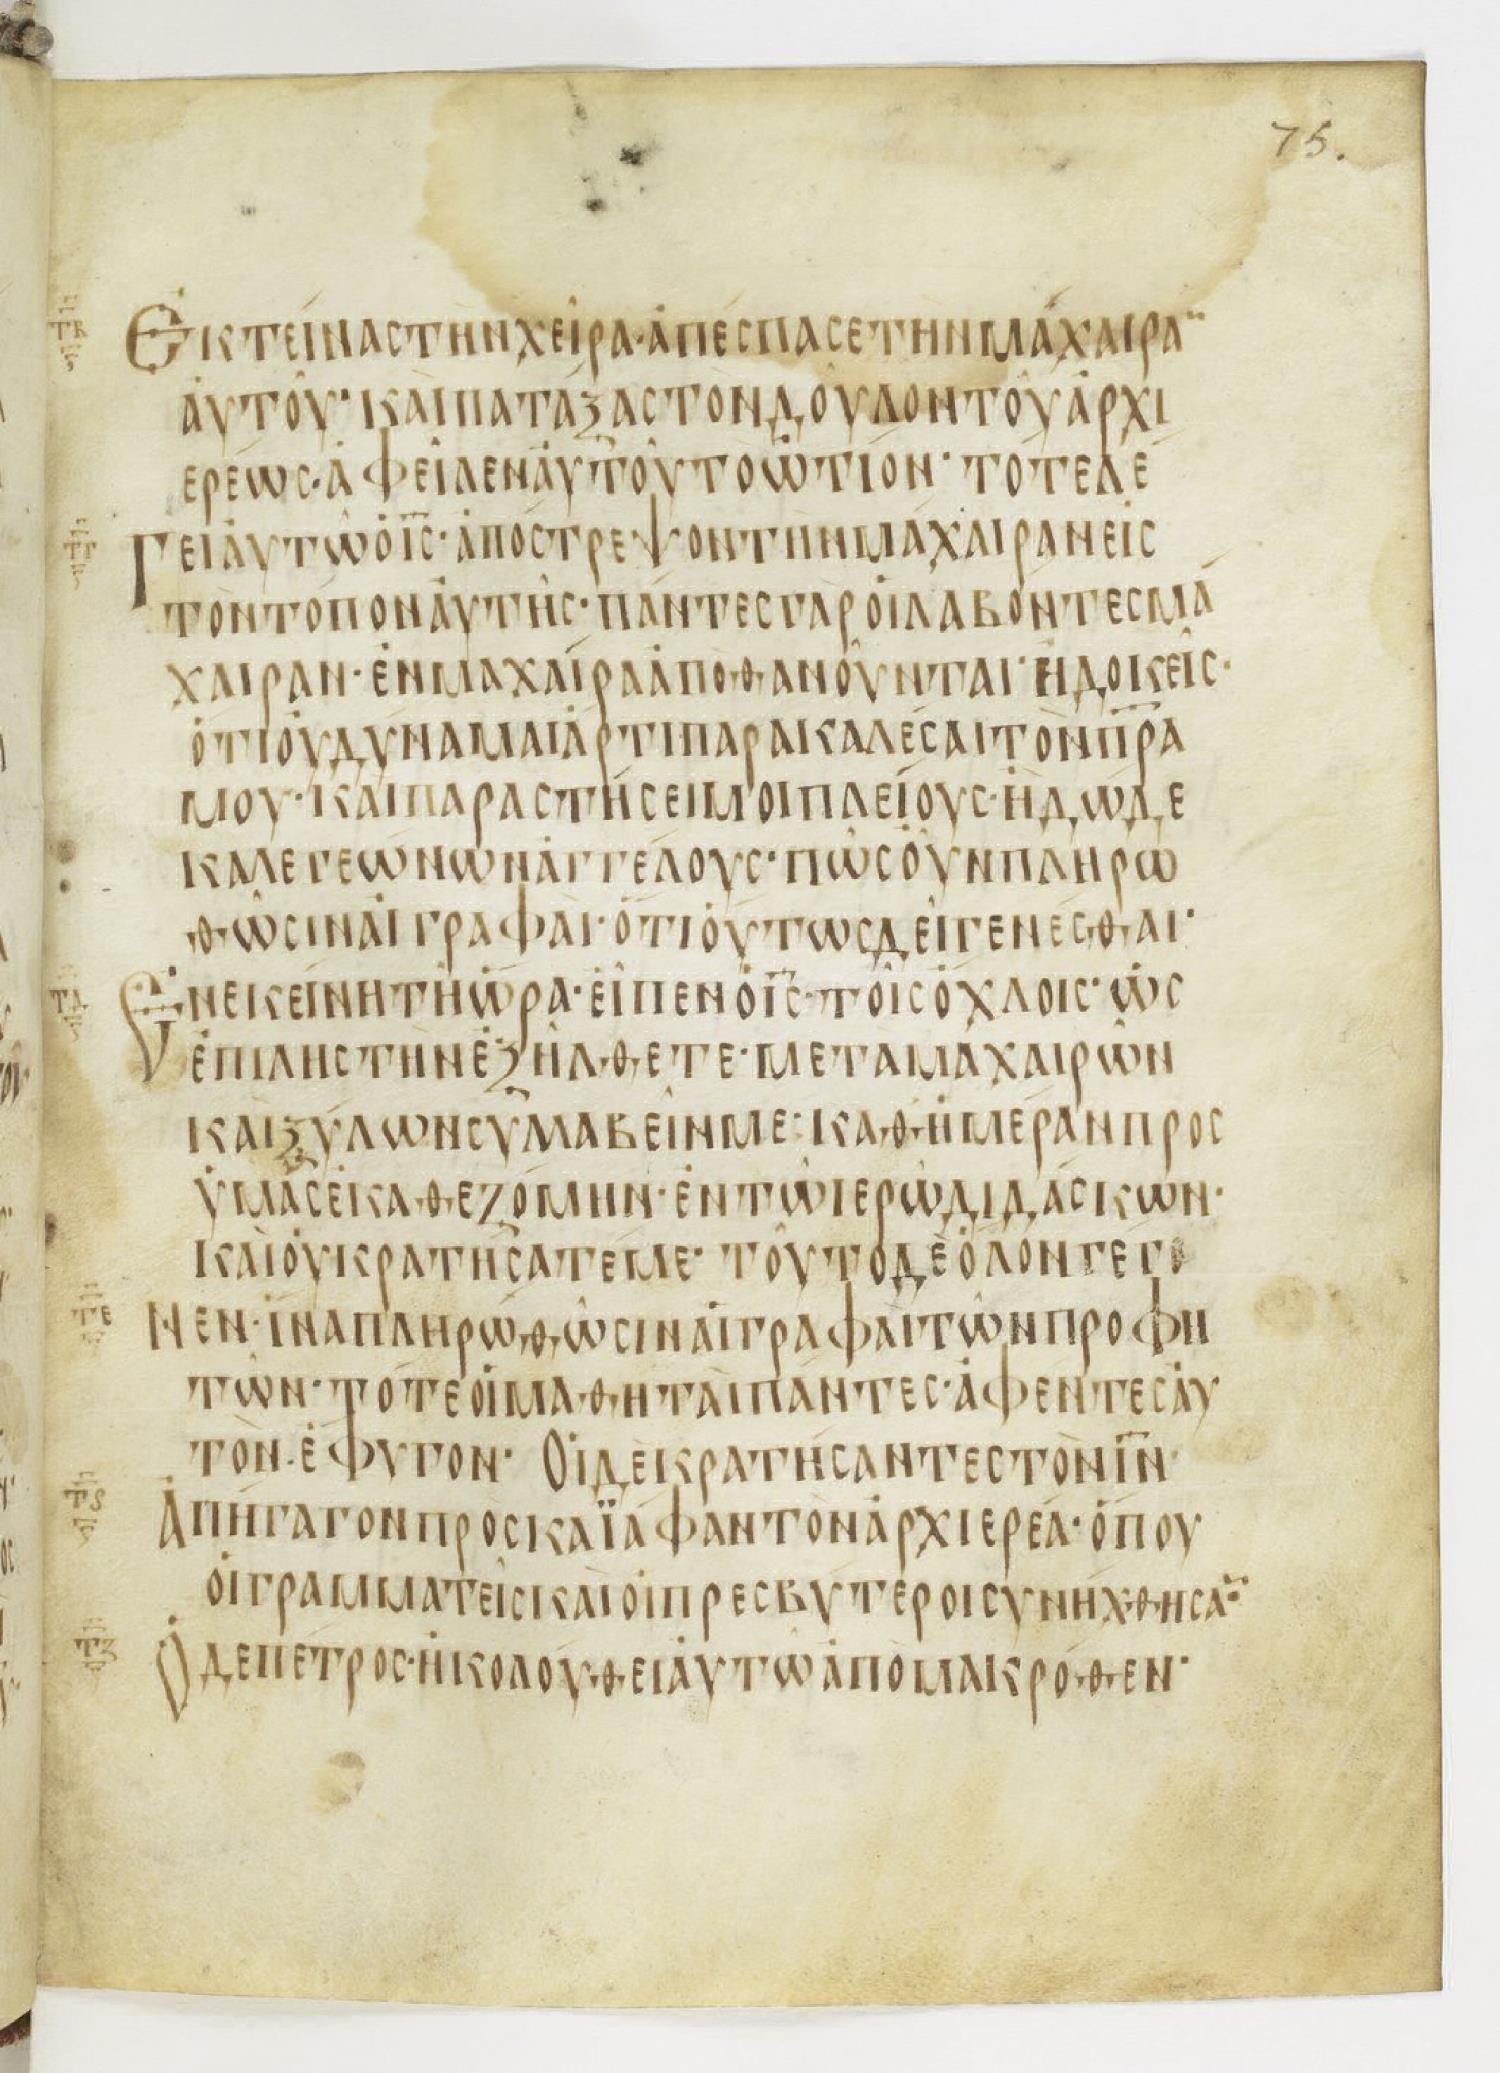 75.
ΕΚΤΕΊΝΑΣ ΤῊΝ ΧΕΙ͂ΡΑ· ἈΠΈΣΠΑΣΕ ΤῊΝ ΜΆΧΑΙΡΑ¨
ἈΥΤΟΥ͂· ΚᾺΙ ΠΑΤΆΞΑΣ ΤῸΝ ΔΟΥ͂ΛΟΝ ΤΟΥ͂ ἈΡΧΙ
ΕΡΈΩΣ· ἈΦΕΙ͂ΛΕΝ ἈΥΤΟΥ͂ ΤΟ ὨΤΊΟΝ· ΤΟΤΕ ΛΈ
ΓΕΙ ἈΥΤΩ͂ Ὁ ΙΣ̅· ἈΠΟΣΤΡΕΨΟΝ ΤῊΝ ΜΆΧΑΙΡΑΝ ΕἸΣ
ΤῸΝ ΤΌΠΟΝ ἈΥΤΗ͂Σ· ΠΆΝΤΕΣ ΓᾺΡ ὉΙ ΛΑΒΌΝΤΕΣ ΜΆ
ΧΑΙΡΑΝ· ἘΝ ΜΑΧΑΊΡΑ ἈΠΟΘΑΝΟΥ͂ΝΤΑΙ· Ἢ ΔΟΚΕΙ͂Σ·
ὍΤΙ ΟὐΔΎΝΑΜΑΙ ἌΡΤΙ ΠΑΡΑΚΑΛΈΣΑΙ ΤῸΝ ΠΡ̅Α
ΜΟΥ· ΚΑΙ ΠΑΡΑΣΤΉΣΕΙ ΜΟΙ ΠΛΕΊΟΥΣ· Ἢ ΔΏΔΕ
ΚΑ ΛΕΓΕΏΝΩΝ ἈΓΓΈΛΟΥΣ· ΠΩ͂Σ ὈΥΝ ΠΛΗΡΩ
ΘΩ͂ΣΙΝ ἉΙ ΓΡΑΦΑΊ· ὍΤΙ ὉΎΤΩΣ ΔΕΙ͂ ΓΕΝΈΣΘΑΙ·
ἘΝ ΕΚΕΊΝΗ ΤΗ͂ ὭΡΑ· ΕἾΠΕΝ Ὁ ΙΣ̅· ΤΟΙ͂Σ ὈΧΛΟΙΣ· ὩΣ
ἘΠῚ ΛΗΣΤῊΝ ἘΞΉΛΘΕΤΕ· ΜΕΤᾺ ΜΑΧΑΙΡΩ͂Ν
ΚΑῚ ΞΎΛΩΝ ΣΥΜΑΒΕΙ͂Ν ΜΕ· ΚΑΘ ἩΜΈΡΑΝ ΠΡΟΣ
ὙΜΑ͂Σ ἘΚΑΘΕΖΌΜΗΝ· ἘΝ ΤΩ͂ ἹΕΡΩ͂ ΔΙΔΆΣΚΩΝ·
ΚΑῚ ΟὐΚ ΡΑΤΉΣΑΤΕ ΜΕ· ΤΟΥ͂ΤΟ ΔῈ ὍΛΟΝ ΓΕΓΟ
ΝΕΝ· ἽΝΑ ΠΛΗΡΩΘΩ͂ΣΙΝ ἉΙ ΓΡΑΦΑῚ ΤΩ͂Ν ΠΡΟΦΗ
ΤΩ͂Ν· ΤΌΤΕ ὉΙ ΜΑΘΗΤΑῚ ΠΆΝΤΕΣ· ἈΦΈΝΤΕΣ ἈΥ
ΤῸΝ· ἜΦΥΓΟΝ· ὉΙ ΔῈ ΚΡΑΤΉΣΑΝΤΕΣ ΤῸΝ ΙΝ̅·
ἈΠΉΓΑΓΟΝ ΠΡῸΣ ΚΑΪΆΦΑΝ ΤῸΝ ἈΡΧΙΕΡΈΑ· ὍΠΟΥ
ὉΙ ΓΡΑΜΜΑΤΕΙ͂Σ ΚΑῚ ὉΙ ΠΡΕΣΒΥΤΕΡΟΙ ΣΥΝΉΧΘΗΣΑ¨
Ὁ ΔΕ ΠΈΤΡΟΣ· ἨΚΟΛΟΎΘΕΙ ἈΥΤΩ͂ ἈΠῸ ΜΑΚΡΌΘΕΝ·